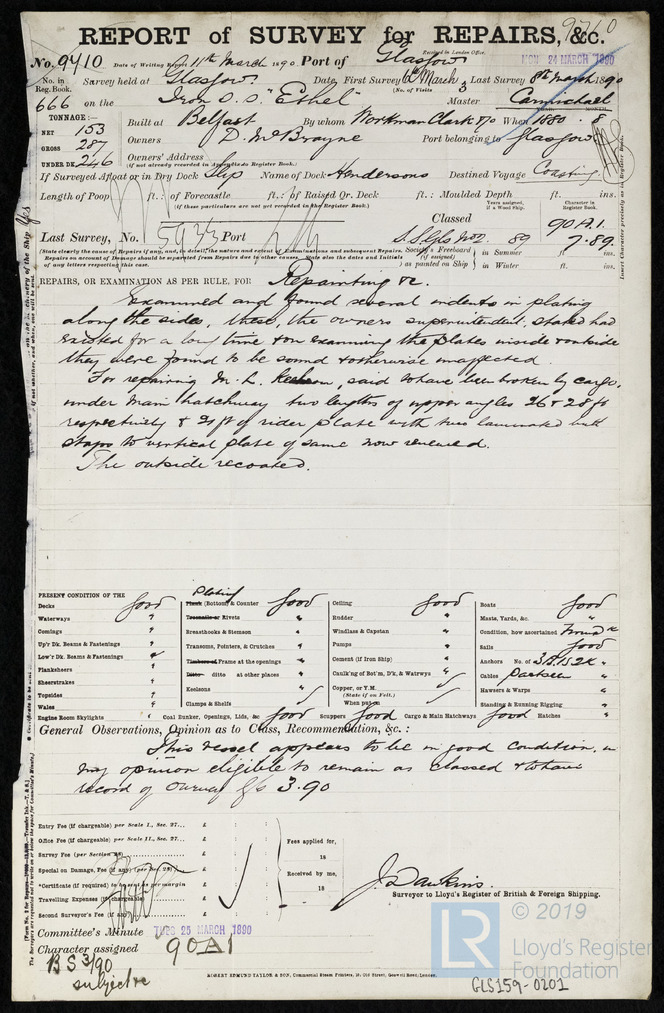 REPORT of SURVEY for REPAIRS, &c. 9710
No. 9410 Date of Writing Report 11th March 1890 Port of Glasgow
Received in London Office. MON 24 MARCH 1890
No. in Reg. Book. Survey held at Glasgow Date, First Survey 6th March, Last Survey 8th March 1890
(No. of Visits 3
666 on the Iron S.S. "Ethel" Master Carmichael
TONNAGE:—
NET 153
GROSS 287
UNDER DK 246
Built at Belfast By whom Workman Clark & Co When 1880 . 8
Owners D. McBrayne Port belonging to Glasgow
Owners' Address
(if not already recorded in Appendix to Register Book.)
If Surveyed Afloat or in Dry Dock Slip Name of Dock Hendersons Destined Voyage Coasting
Length of Poop ft.: of Forecastle ft.: of Raised Qr. Deck ft.: Moulded Depth ft. ins.
(If these particulars are not yet recorded in the Register Book.)
Years assigned, if a Wood Ship. Character in Register Book.
Classed 90A1.
Last Survey, No. 5933 Port S.S. Gls No2. 89 7.89
(State clearly the cause of Repairs if any, and, in detail, the nature and extent of Examinations and subsequent Repairs.
Repairs on account of Damage should be separated from Repairs due to other causes. State also the dates and Initials
of any letters respecting this case.
Society's Freeboard (if assigned) as painted on Ship } in Summer ft. ins.
in Winter ft. ins.
REPAIRS, OR EXAMINATION AS PER RULE, FOR Repainting &c.
Examined and found several indents in plating
along the sides, these, the owners superintendent, stated had
existed for a long time & on examining the plates inside & outside
they were found to be sound & otherwise unaffected.
For repairing M. L. Keelson, said to have been broken by cargo,
under main hatchway two lengths of upper angles 26 & 28 ft
respectively & 21 ft of rider plate with two laminated butt
straps to vertical plate of same now renewed.
The outside recoated.
PRESENT CONDITION OF THE
Decks good
Waterways "
Comings "
Up'r Dk. Beams & Fastenings "
Low'r Dk. Beams & Fastenings "
Planksheers "
Sheerstrakes "
Topsides "
Wales "
Engine Room Skylights "
Plating
Plank (Bottom) & Counter good
Treenails or Rivets "
Breasthooks & Stemson "
Transoms, Pointers, & Crutches "
Timbers of Frame at the openings "
Ditto ditto at other places "
Keelsons
Clamps & Shelfs
Coal Bunker, Openings, Lids, &c good
Ceiling good
Rudder "
Windlass & Capstan "
Pumps "
Cement (if Iron Ship) "
Caulk'ng of Bot'm, D'k, & Watrwys "
Copper, or Y.M.
(State if on Felt.)
When put on
Scuppers good Cargo & Main Hatchways good Hatches "
Boats good
Masts, Yards, &c. "
Condition, how ascertained Found &c
Sails good
Anchors No. of 3B. 1S. 2K "
Cables Part seen "
Hawsers & Warps "
Standing & Running Rigging "
General Observations, Opinion as to Class, Recommendation, &c.:
This vessel appears to be in good condition, in
my opinion eligible to remain as classed & to have
record of survey Gls 3.90
Entry Fee (if chargeable) per Scale I., Sec. 27... £ : :
Office Fee (if chargeable) per Scale II., Sec. 27... £ : :
Survey Fee (per Section 28) £ : :
Special on Damage, Fee (if any) (per Sec. 28) £ : :
*Certificate (if required) to be sent as per margin
Travelling Expenses (if chargeable) £ : :
Second Surveyor's Fee (if any) £ : :
Fees applied for,
18
Received by me,
18
J. Dawkins.
Surveyor to Lloyd's Register of British & Foreign Shipping.
Committee's Minute TUES 25 MARCH 1890
Character assigned 90A1
BS 3/90
subject re
ROBERT EDMUND TAYLOR & SON, Commercial Steam Printers, 19, Old Street, Goswell Road, London.
LR
© 2019
Lloyd's Register
Foundation
GLS159-0201